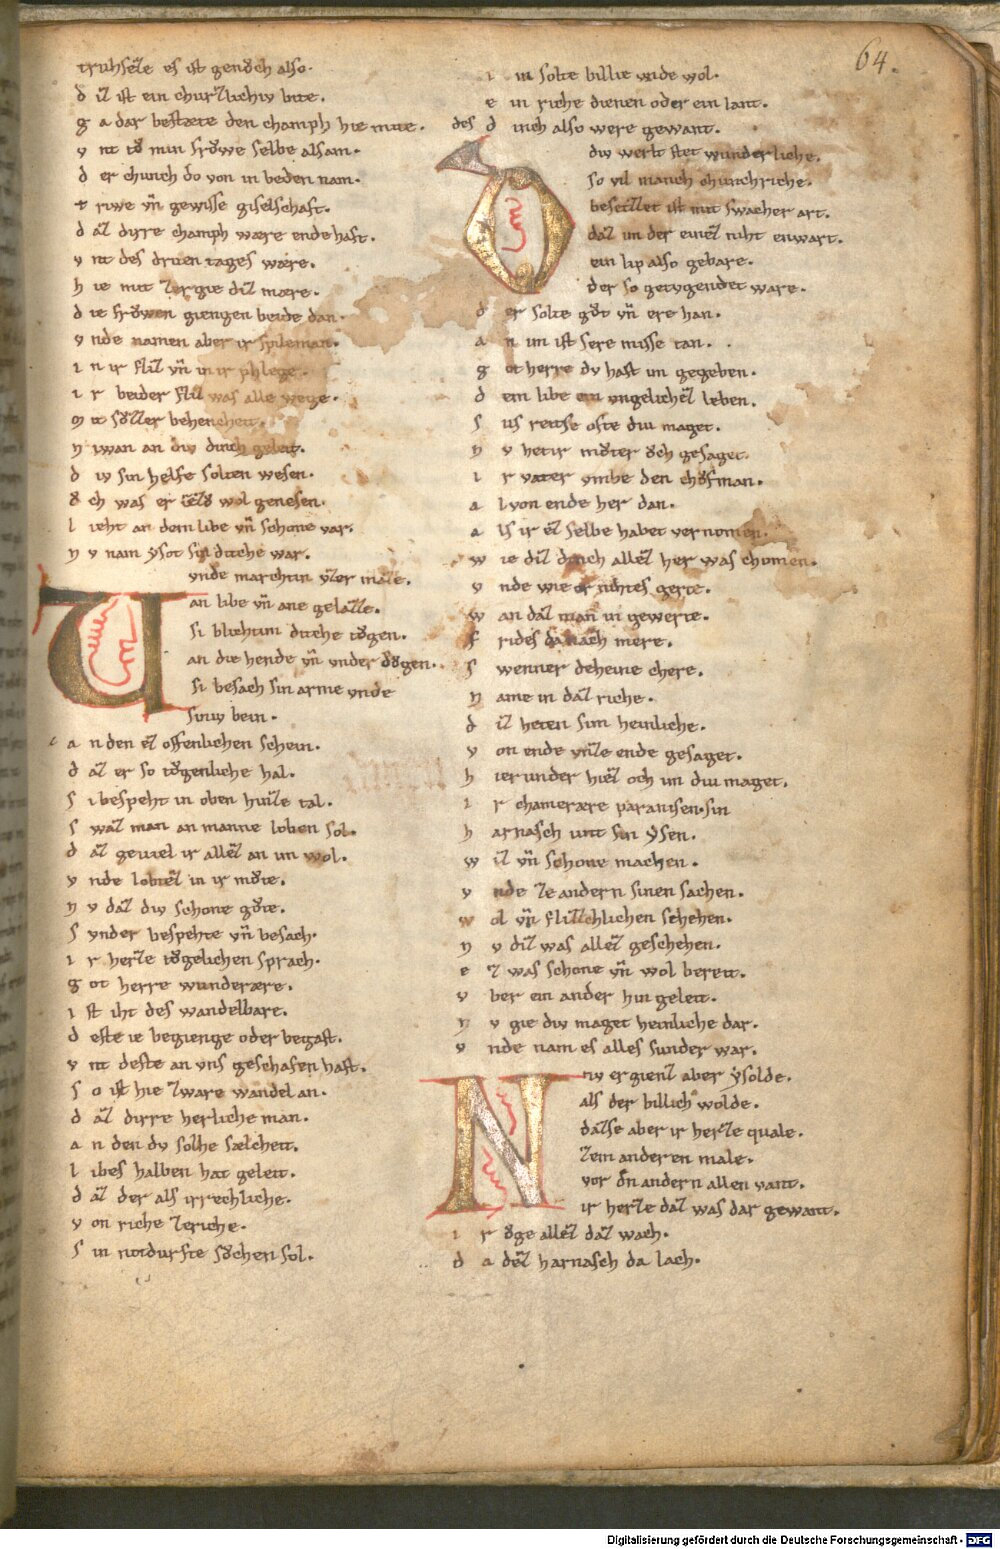 64.
truhsęze es ist gerͦch also.
d iz ist ein churzlichiv bite.
g a dar bestæte den champh hie mite.
v nt tͦ min frͦwe selbe alsam.
d er chunich do von in beden nam.
t riwe vn̄ gewisse giselschaft.
d az dirre champh wære endehaft.
v nt des driten tages wære.
h ie mit zergie diz mære.
d ie frͦwen giengen beide dan.
v nde namen aber ir spileman.
i n ir fliz vn̄ in ir phlege.
i r beider fliz was alle wege.
m it sͦzzer
n iwan an div dinch geleit.
d iv sin helfe solten wesen.
ͦ ch was er wol genesen.
l ieht an dem libe vn̄ schone var.
n v nam ẏsot sin dicche war.
vnde marchtin vzer maze.
an libe vn̄ ane gelazze.
si blichtim dicche tͦgen.
an die hende vn̄ vnder ͦgen.
si besach sin arme vnde
siniv bein.
a n den ez offenlichen schein.
d az er so tͦgenliche hal.
s i bespeht in oben hinze tal.
s waz man an manne loben sol.
d az geviel ir allez an im wol.
v nde lobtez in ir mͦte.
n v daz div schone gͦte.
s vnder bespehte vn̄ besach.
i r herze tͦgelichen sprach.
g ot herre wunderære.
i st iht des wandelbære.
d este ie begienge oder begast.
v nt deste an vns geschafen hast.
s o ist hie zware wandel an.
d az dirre herliche man.
a n den dv solhe sælcheit.
l ibes halben hat geleit.
d az der als irrechliche.
v on riche zeriche.
s in notdurfte sͦchen sol.
i m solte billie wide wol.
e in riche dienen oder ein lant.
des d inch also were gewant.
div werlt stet wunderliche.
so vil manich chunchriche.
besetzzet ist mit swacher art.
daz im der einez niht enwart.
ein lip also gebare.
der so getvgendet ware.
d er solte gͦt vn̄ ere han.
a n im ist sere misse tan.
g ot herre dv hast im gegeben.
d em libe ein vngelichez leben.
s us reitse ofte div maget.
n v hetir mͦter ͦch gesaget.
i r vater vmbe den chͦfman.
a l von ende her dan.
a ls ir ez selbe habet vernomen.
w ie diz dinch allez her was chomen.
v nde wie er nihtes gerte.
w an daz man in gewerte.
f rides da nach mere.
s wenner deheine chere.
n ame in daz riche.
d iz heten sim heinliche.
v on ende vnze ende gesaget.
h ier under hiez och im div maget.
i r chamerære paranisen. sin
h arnasch unt sin ẏsen.
w iz vn̄ schone machen.
v nde ze andern sinen sachen.
w ol vn̄ flizzchlichen sehehen.
n v diz was allez geschehen.
e z was schone vn̄ wol bereit.
v ber ein ander hin geleit.
n v gie div maget heinliche dar.
v nde nam es alles sunder war.
N nv ergienz aber ẏsolde.
als der billich wolde.
dazse aber ir herze quale.
zem anderen male.
vor dͤn andern allen vant.
ir herze daz was dar gewant.
i r ͦge allez daz wach.
d a dez harnasch da lach.
Digitalisierung gefördert durch die Deutsche Forschungsgemeinschaft - DFG